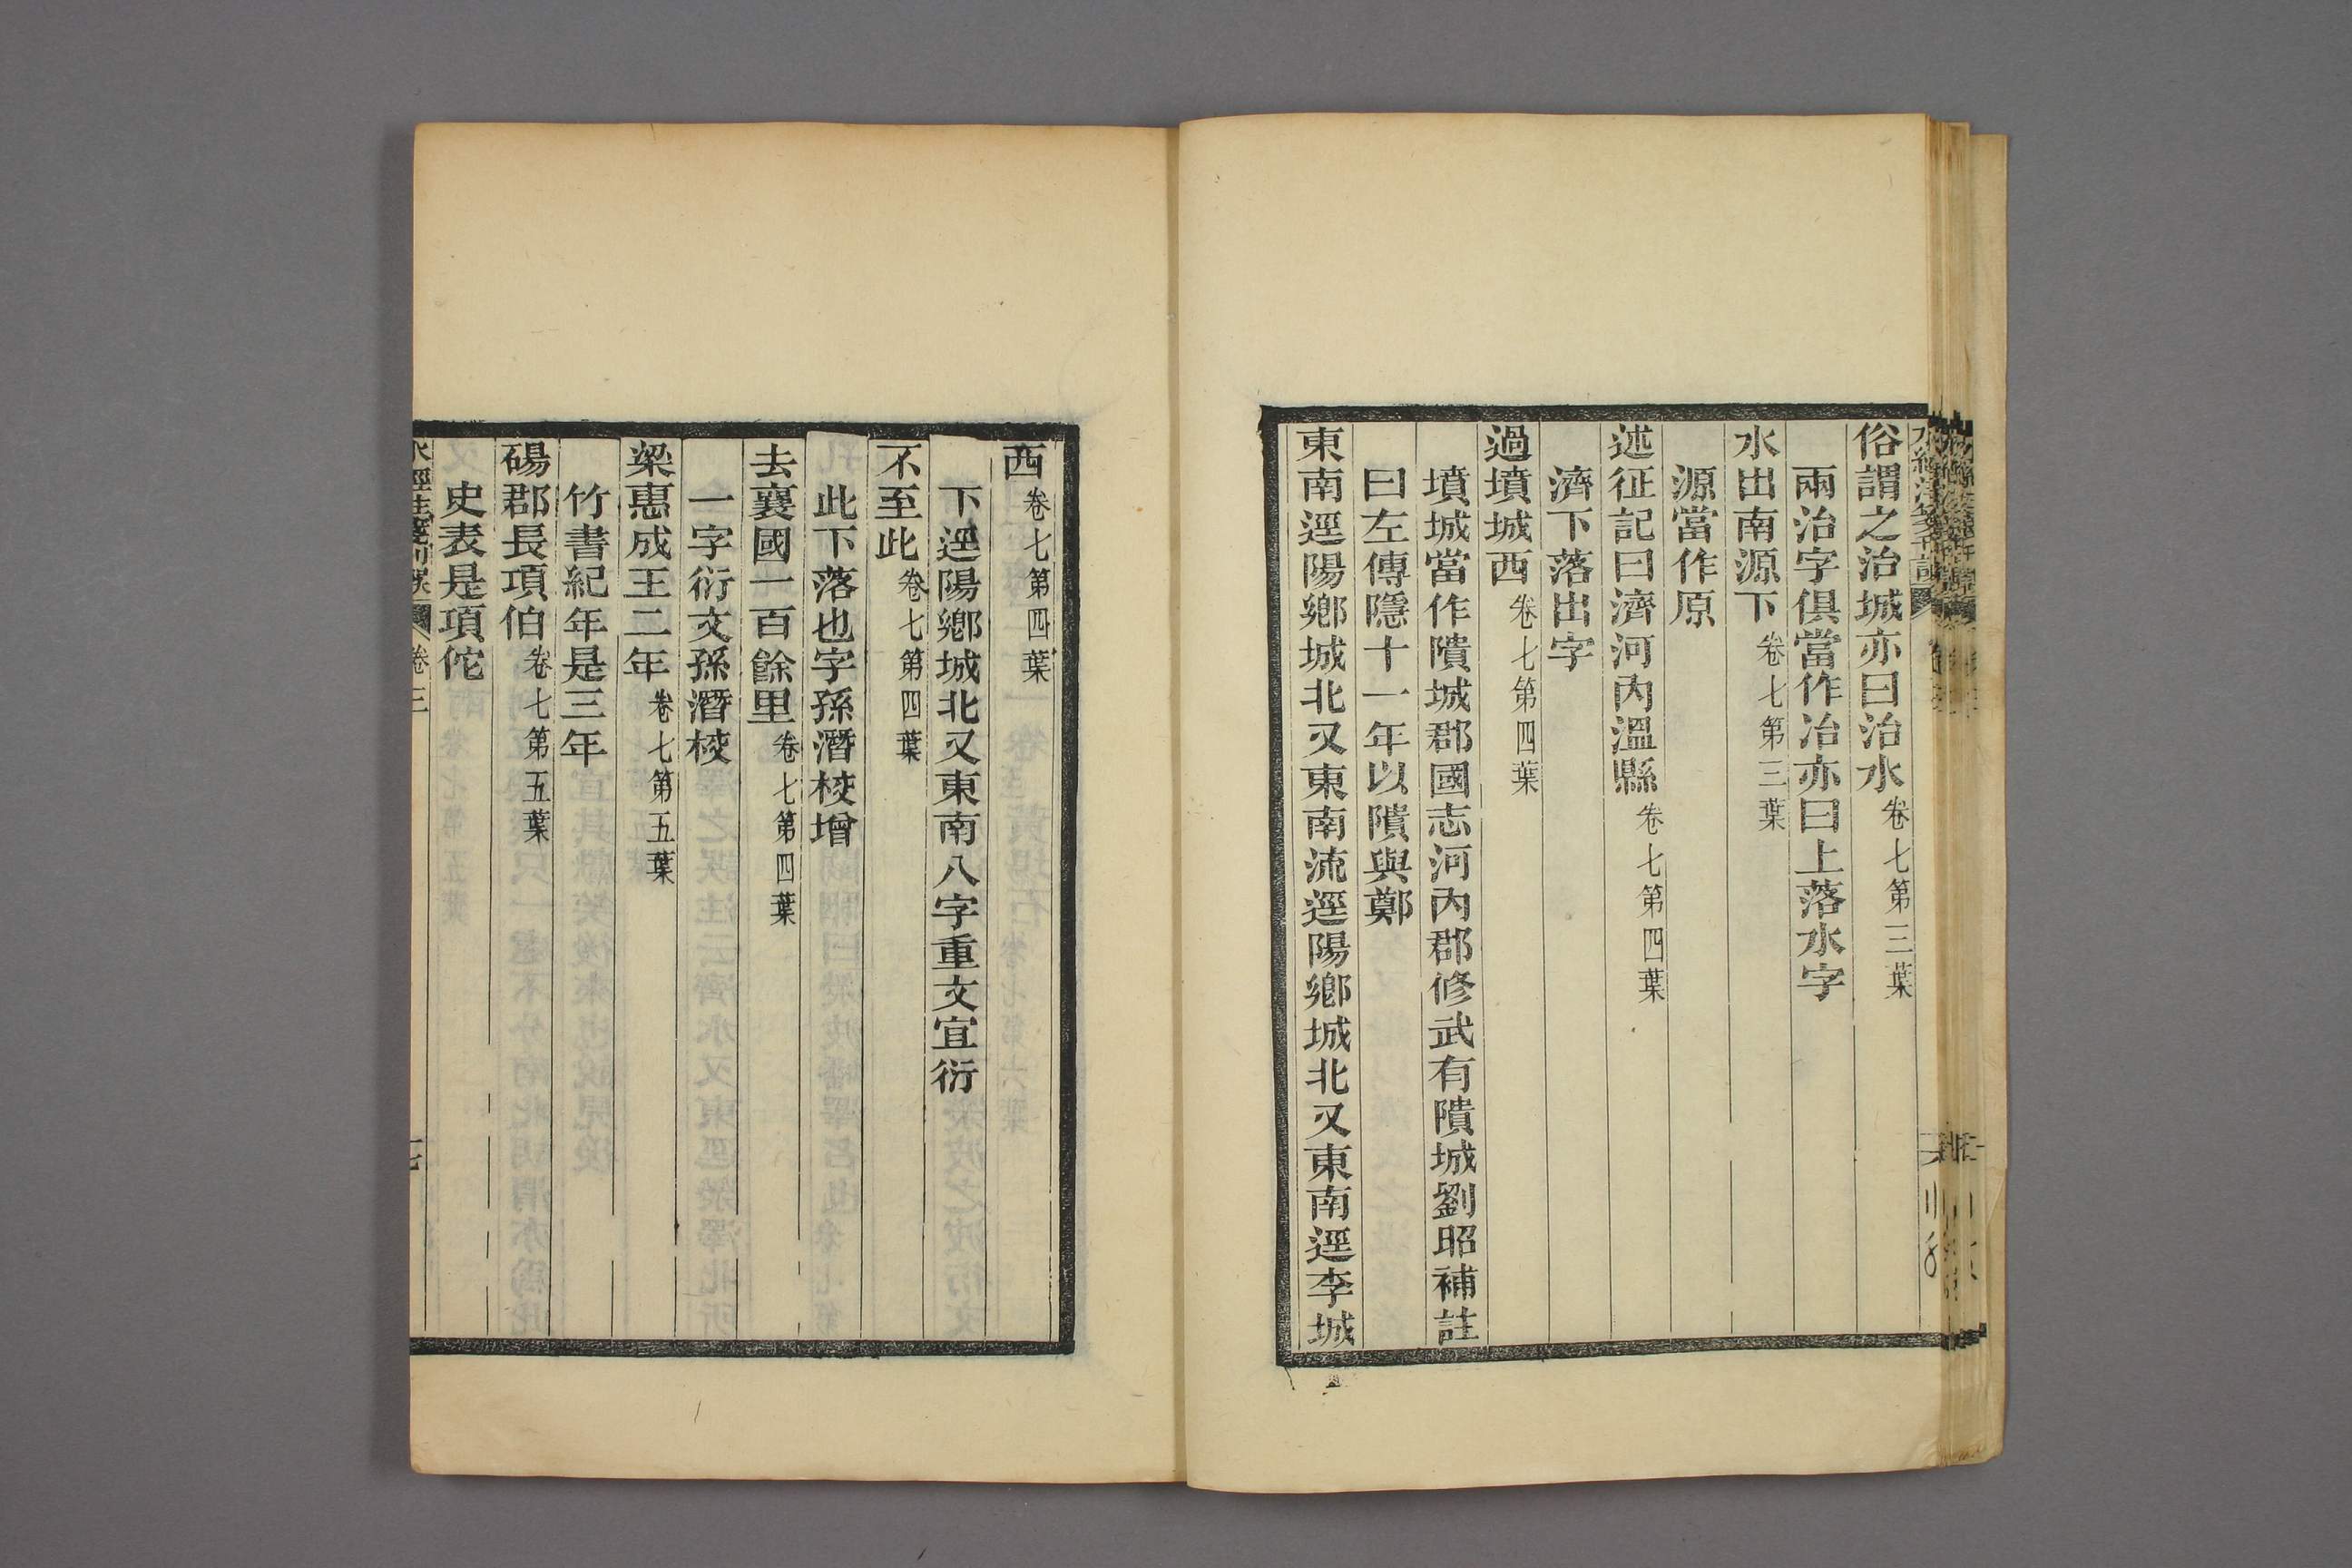 俗謂之治城亦曰治水卷七第三葉
兩治字俱當作冶亦曰上落水字
水出南源下卷七第三葉
源當作原
述征記曰濟河內溫縣卷七第四葉
濟下落出字
過墳城西卷七第四葉
墳城當作隤城郡國志河內郡修武有隤城劉昭補註
曰左傳隱十一年以隤與鄭
東南逕陽鄉城北又東南流逕陽鄉城北又東南逕李城
西卷七第四葉
下逕陽鄉城北又東南八字重文宜衍
不至此卷七第四葉
此下落也字孫潛校增
去襄國一百餘里卷七第四葉
一字衍文孫潛校
梁惠成王二年卷七第五葉
竹書紀年是三年
碭郡長項伯卷七第五葉
史表是項佗
水經注箋刊誤 卷三